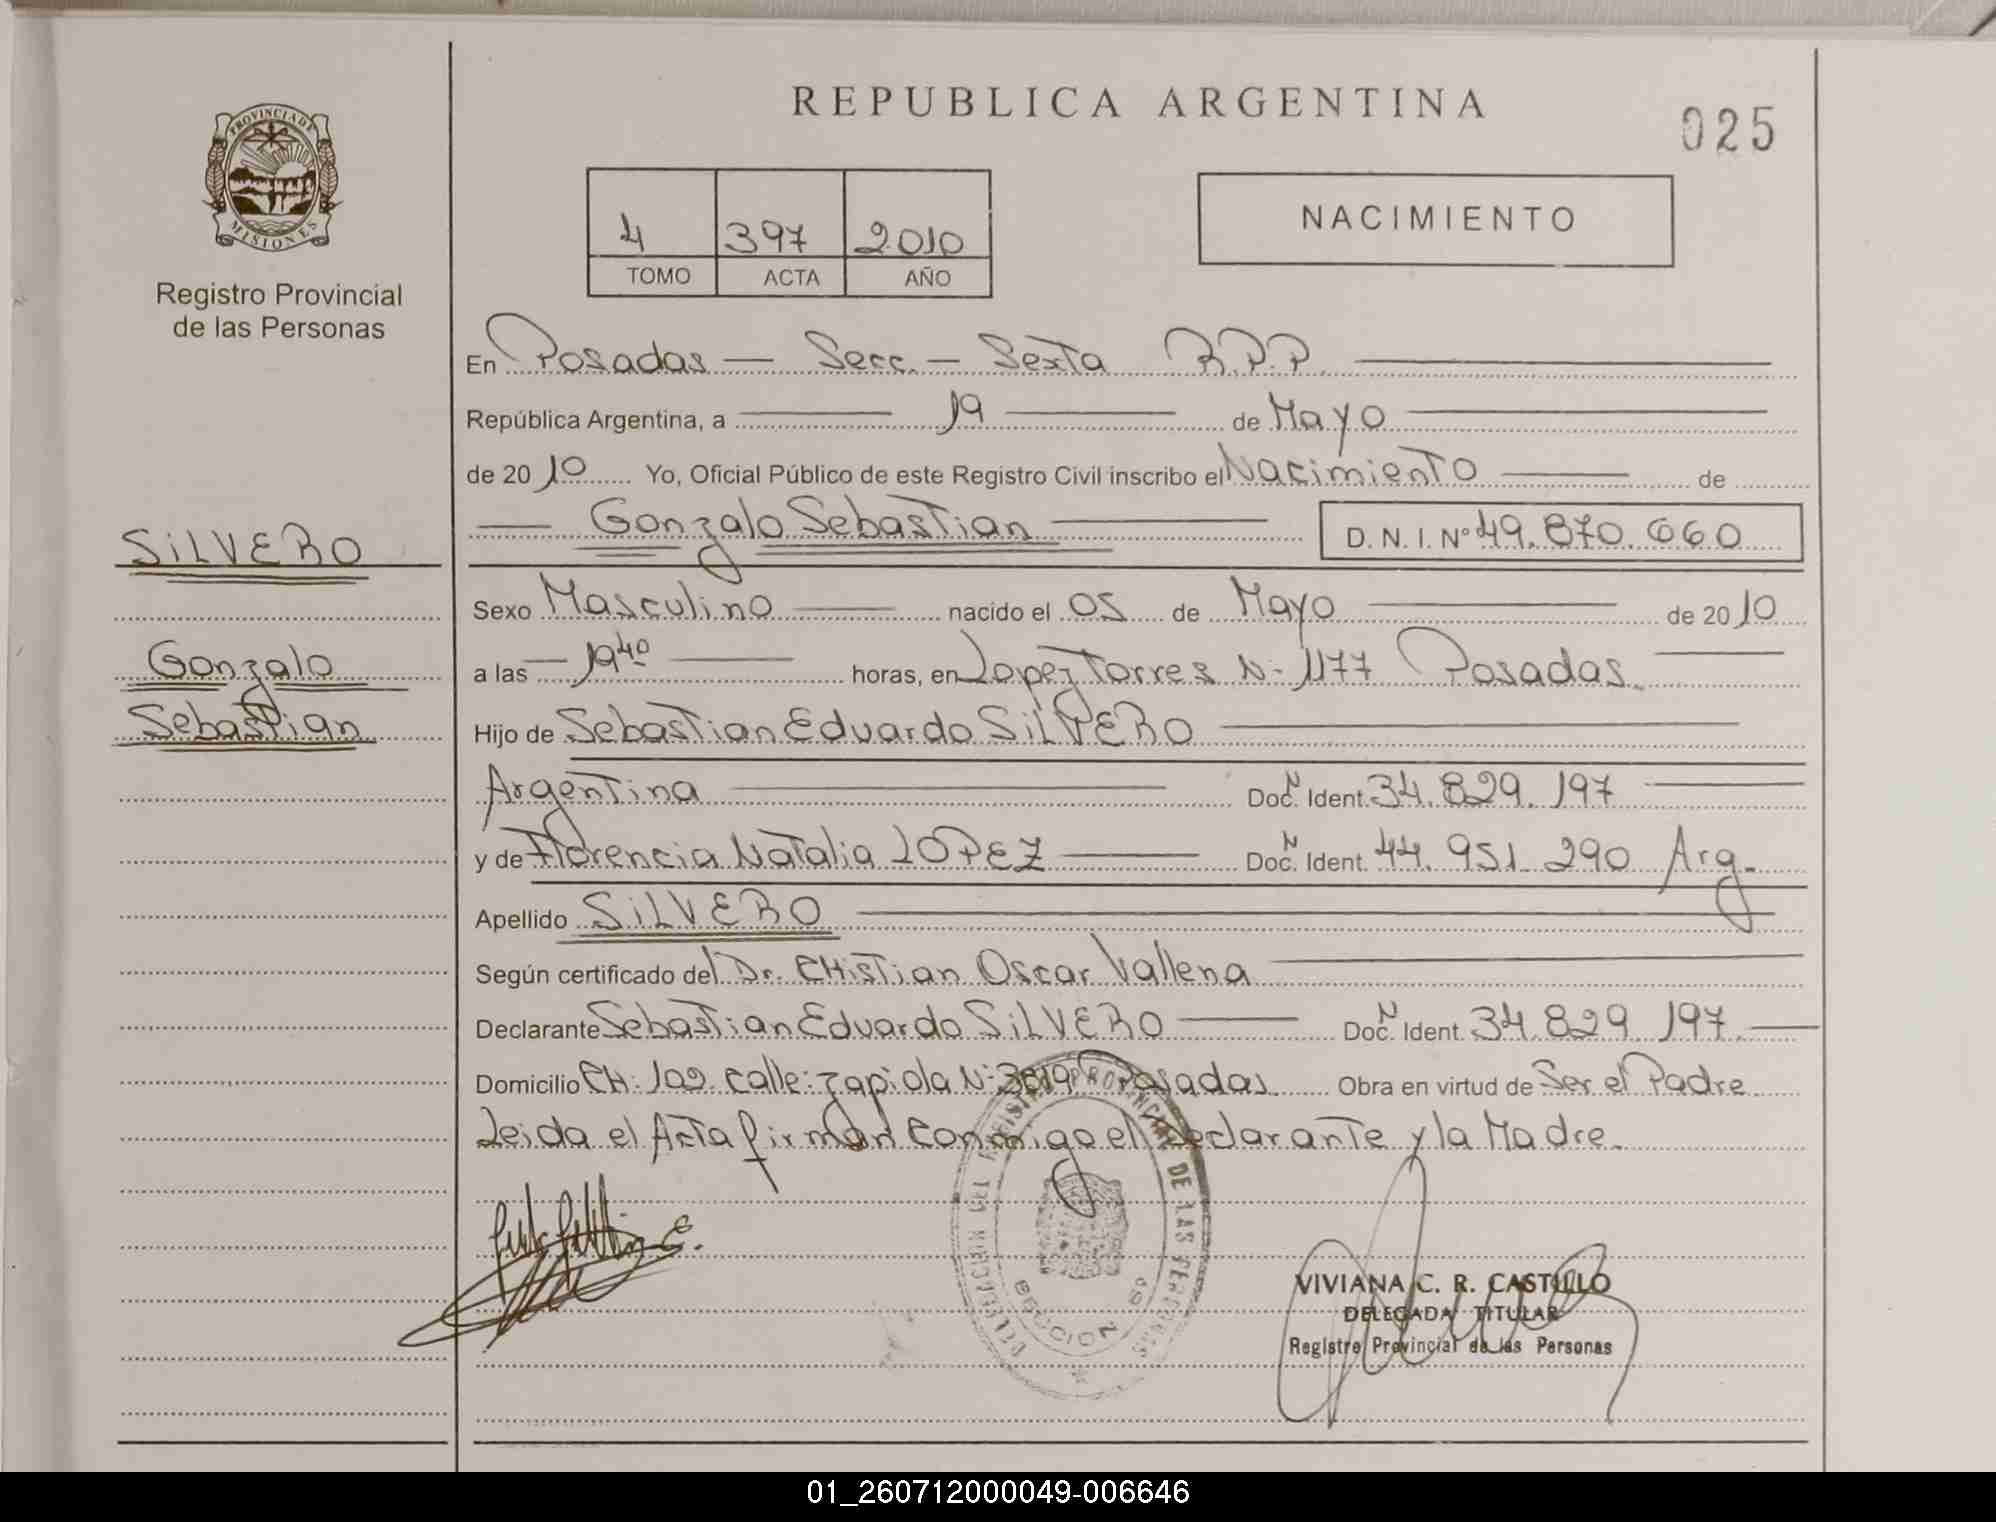 REPUBLICA ARGENTINA
025
PROVINCIA DE
MISIONES
Registro Provincial
de las Personas
4 397 2010
TOMO ACTA AÑO
NACIMIENTO
En Posadas — Secc. — Sexta R.P.P.
República Argentina, a 19 de Mayo
de 2010 Yo, Oficial Público de este Registro Civil inscribo el Nacimiento de
Gonzalo Sebastian D. N. I. Nº 49.870.660
SILVERO
Gonzalo
Sebastian
Sexo Masculino nacido el 05 de Mayo de 2010
a las 19 40 horas, en Lopez Torres N- 1177 Posadas.
Hijo de Sebastian Eduardo SILVERO
Argentina Doc. N Ident. 34.829.197
y de Florencia Natalia LOPEZ Doc. N Ident. 44.951.290 Arg.
Apellido SILVERO
Según certificado del Dr. CHistian Oscar Vallena
Declarante Sebastian Eduardo SILVERO Doc. N Ident. 34.829.197
Domicilio CH: 109. calle: zapiola N: 3019 Posadas. Obra en virtud de Ser el Padre
Leida el Acta firman conmigo el Declarante y la Madre.
DELEGACION DEL REGISTRO PROVINCIAL DE LAS PERSONAS
SECCION 6º
VIVIANA C. R. CASTILLO
DELEGADA TITULAR
Registro Provincial de las Personas
01_260712000049-006646